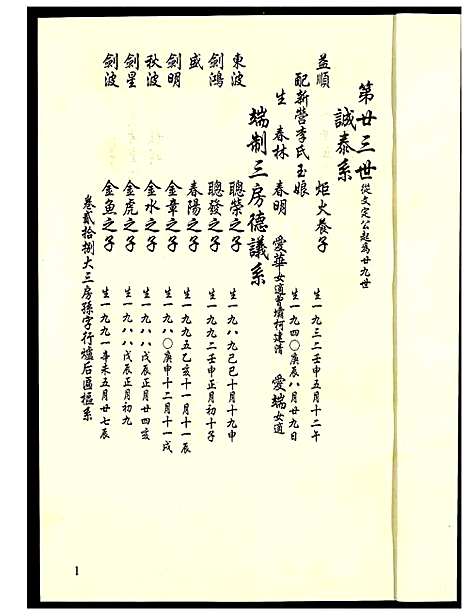 第廿三世 從文定公起為廿九世
誠泰系
益順 炬火養子 生一九三二壬申五月十二午
配新營李氏玉娘 生一九四〇庚辰八月廿九日
生 春林 春明 愛華女適曹壩柯建清 愛端女適
端制三房德議系
東波 聰榮之子 生一九八九己巳十月十九申
劍鴻 聰發之子 生一九九二壬申正月初十子
盛 春陽之子 生一九九五乙亥十一月十一辰
劍明 金章之子 生一九八〇庚申十二月十一戌
秋波 金水之子 生一九八八戊辰正月廿四亥
劍星 金虎之子 生一九八八戊辰正月初九
劍波 金魚之子 生一九九一辛未五月廿七辰
卷貳拾捌大三房孫字行爐后區楹系
1